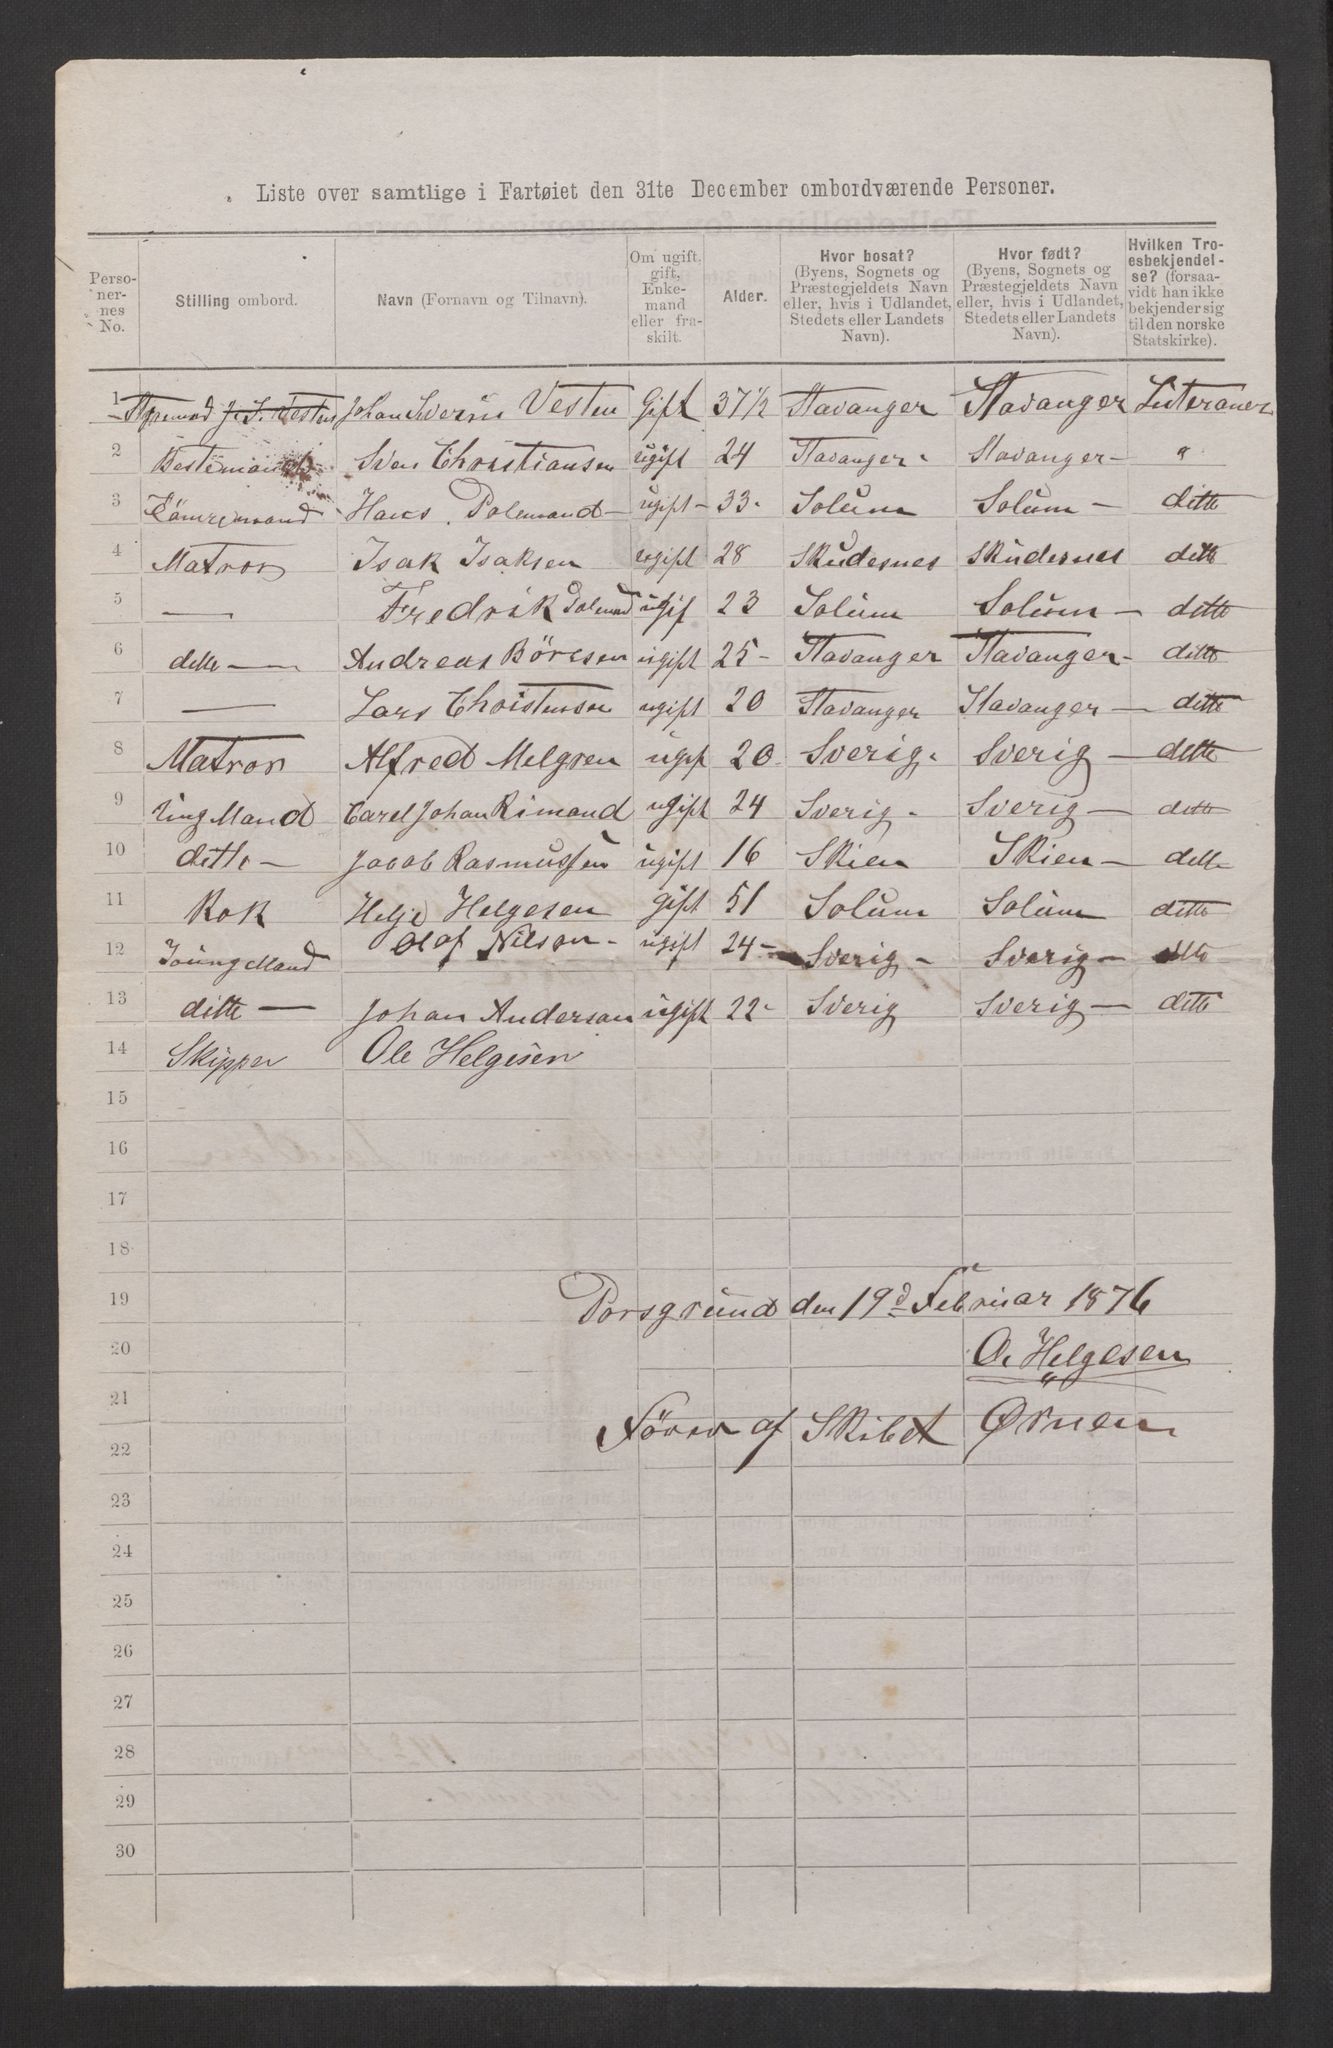 Liste over samtlige i Fartøiet den 31te December ombordværende Personer.
Perso-nernes No. | Stilling ombord. | Navn (Fornavn og Tilnavn). | Om ugift, gift, Enkemand eller fraskilt. | Alder. | Hvor bosat? (Byens, Sognets og Præstegjeldets Navn eller, hvis i Udlandet, Stedets eller Landets Navn). | Hvor født? (Byens, Sognets og Præstegjeldets Navn eller, hvis i Udlandet, Stedets eller Landets Navn). | Hvilken Troesbekjendelse? (forsaavidt han ikke bekjender sig til den norske Statskirke).
1 Styrmand J. S. Vesten Johan Sverin Vesten Gift 37 1/2 Stavanger Stavanger Luteraner
2 Bestemand Sven Christiansen ugift 24 Stavanger - Stavanger - "
3 Tömremand Hans Polemand - ugift - 33 - Solum Solum - ditto
4 Matros Isak Isaksen ugift 28 Skudesnes Skudernes ditto
5 — Fredrik Polemand ugif 23 Solum Solum - ditto
6 ditto — Andreas Böresen ugift 25 - Stavanger Stavanger - ditto
7 — Lars Christensen ugift 20 Stavanger Stavanger - ditto
8 Matros Alfred Melgren ugift 20 Sverig - Sverig - ditto
9 Ung Mand Carel Johan Rimand ugift 24 Sverig - Sverig - ditto
10 ditto - Jacob Rasmussen ugift 16 Skien Skien - ditto
11 Kok Helje Helgesen gift 51 Solum Solum ditto
12 Joung Mand Olaf Nilson - ugift 24 - Sverig - Sverig - ditto
13 ditto — Johan Anderson ugift 22 - Sverig Sverig - ditto
14 Skipper Ole Helgesen
15
16
17
18
19 Porsgrund den 19d Februar 1876
20 O. Helgesen
21
22 Förer af Skibet Ørnen
23
24
25
26
27
28
29
30